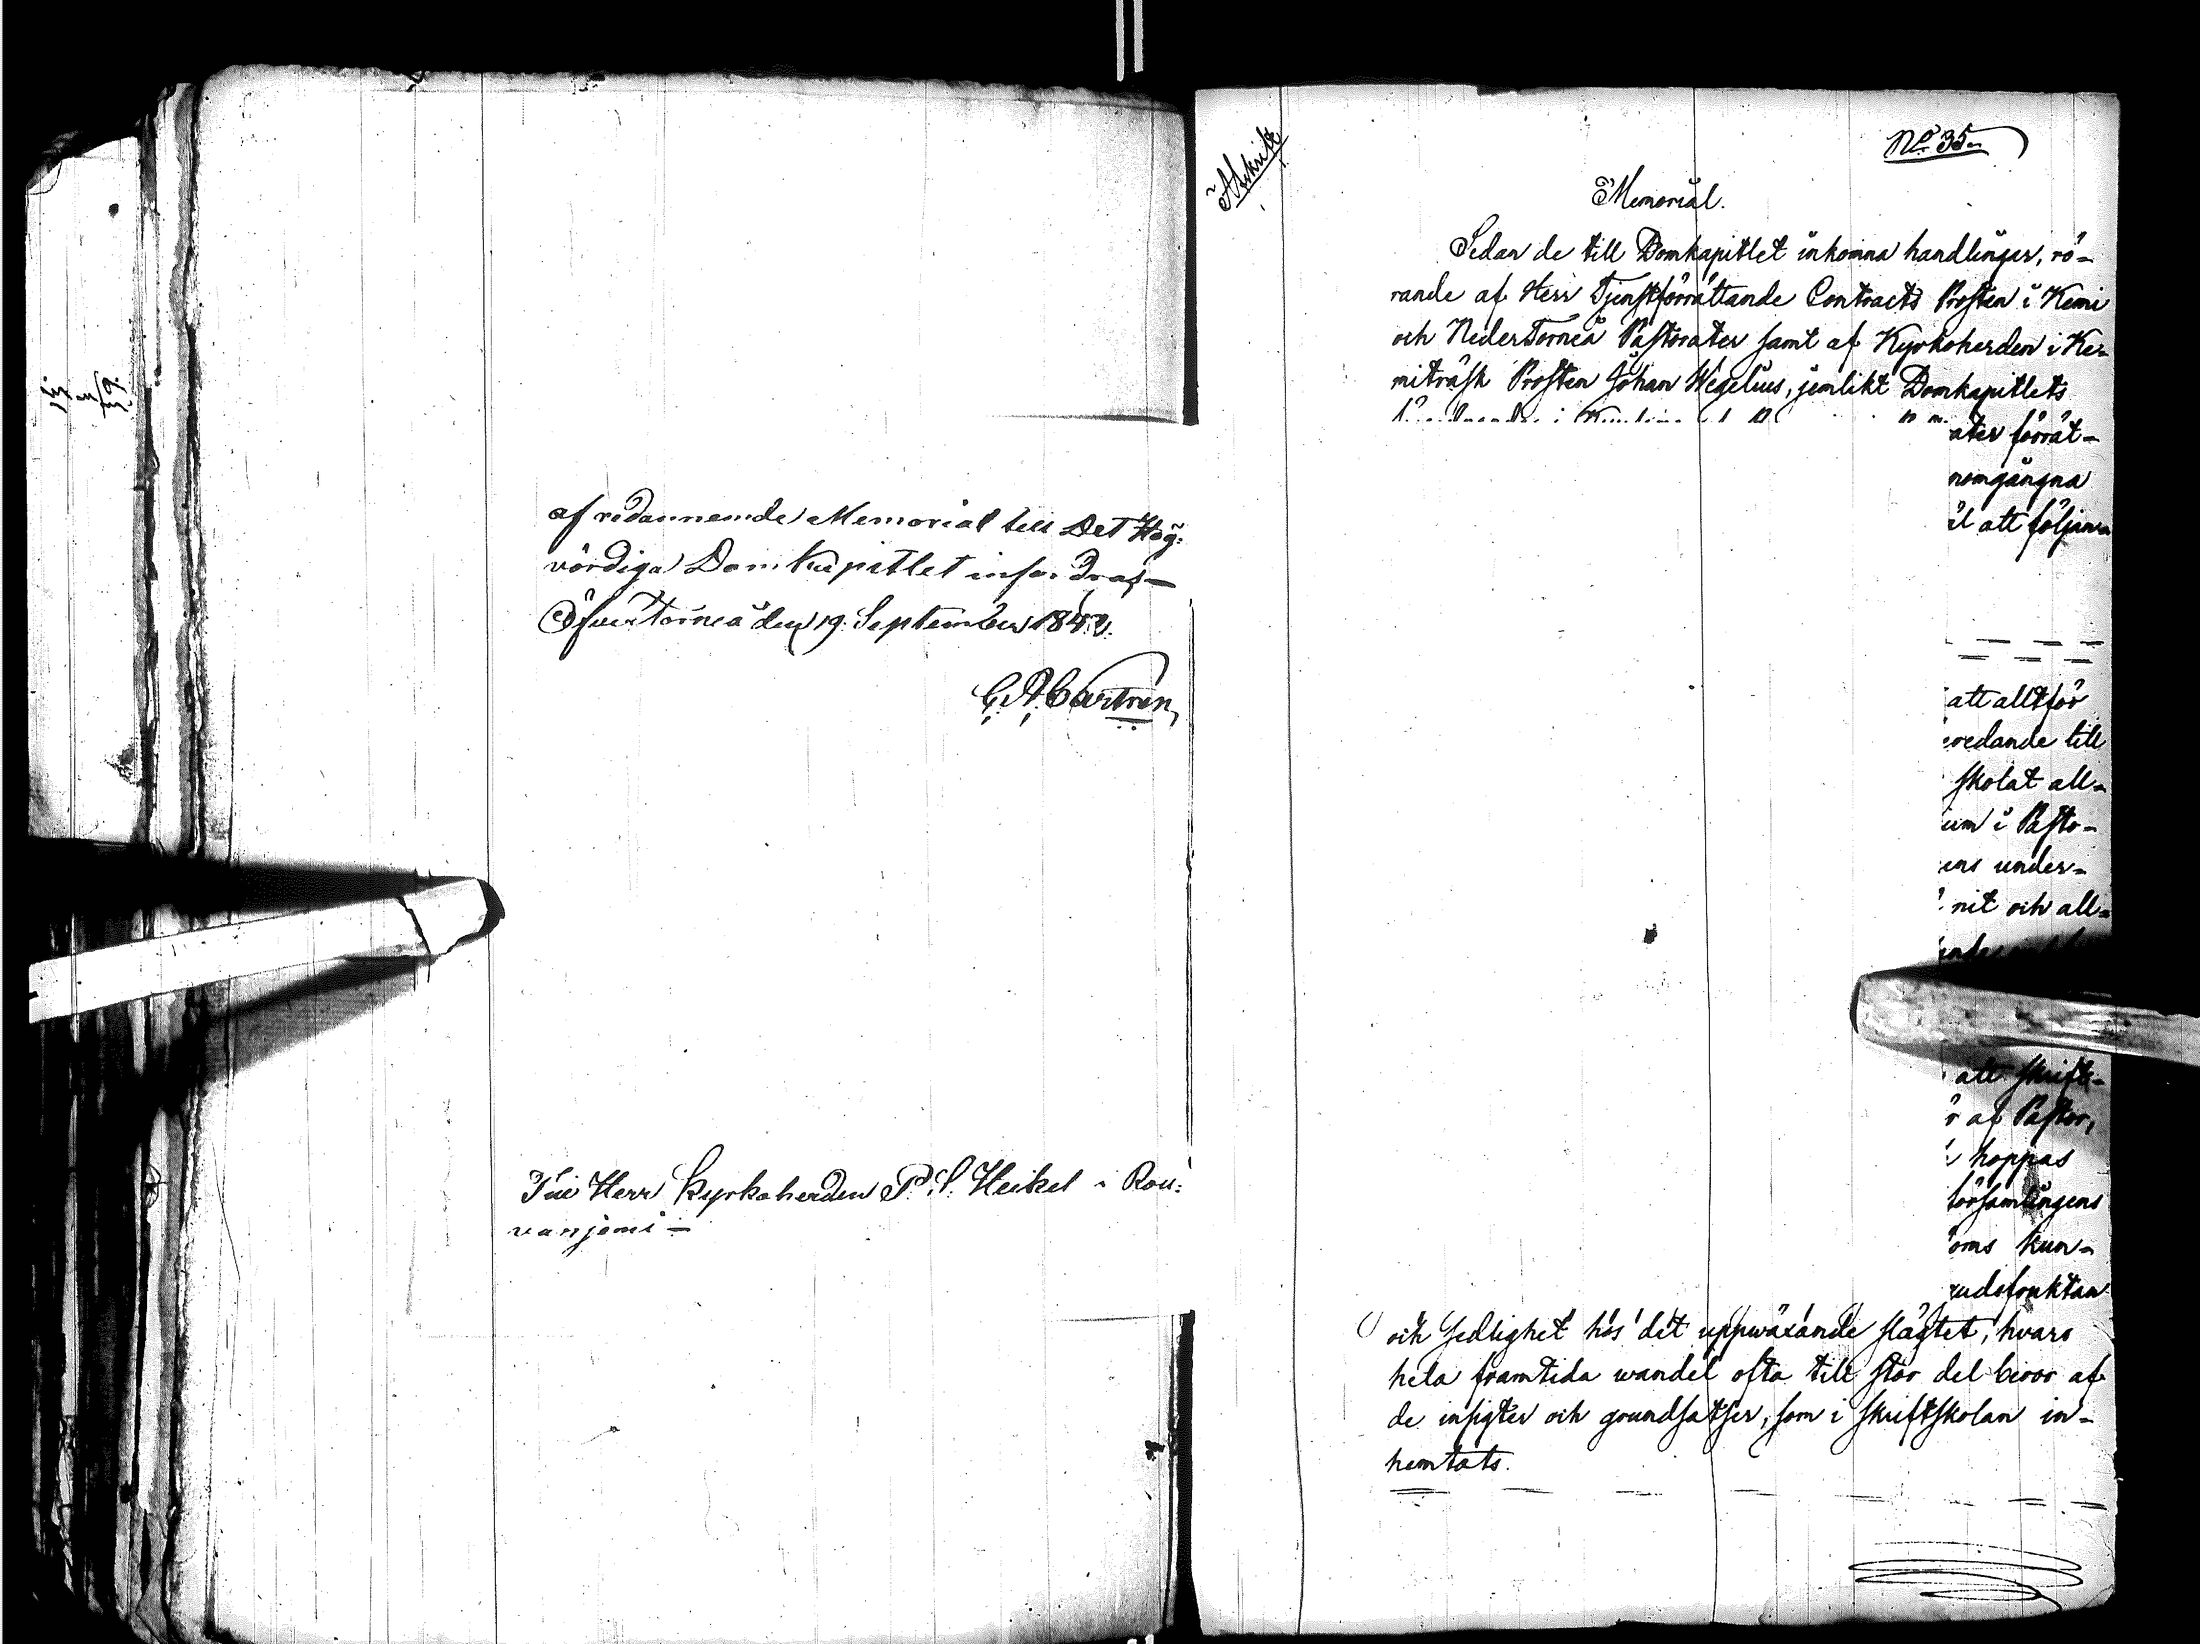 af redannemde Memorial till Det Hög:
vördiga Domkapitlet infordras—
Öfvertorneå den 19 September 184
C. A. Castrén
Till Herr Kyrkoherden P. S. Heikel i Rou:
vanjemi —
Afskrift
No 35.
Memorial.
Sedan de till Domkapitlet inkomna handlingar, rö-
rande af Herr Tjenstförrättande Contracts Prosten i Kemi
och NederTorneå Pastorater samt af Kyrkoherden i Ke-
miträsk Prosten Johan Wegelius, jemlikt Domkapitlets
ater förrät-
nomgångna
att följan
att alltför
redande till
skolat all-
um i Pasto-
ens under-
nit och all-
att skrift-
af Pastor,
hoppas
församlingens
oms kun-
udsfruktan
och sedlighet hos det uppwäxande slägtet, hvars
hela framtida wandel ofta till stor del beror af
de insigter och grundsatser, som i skriftskolan in-
hemtats.